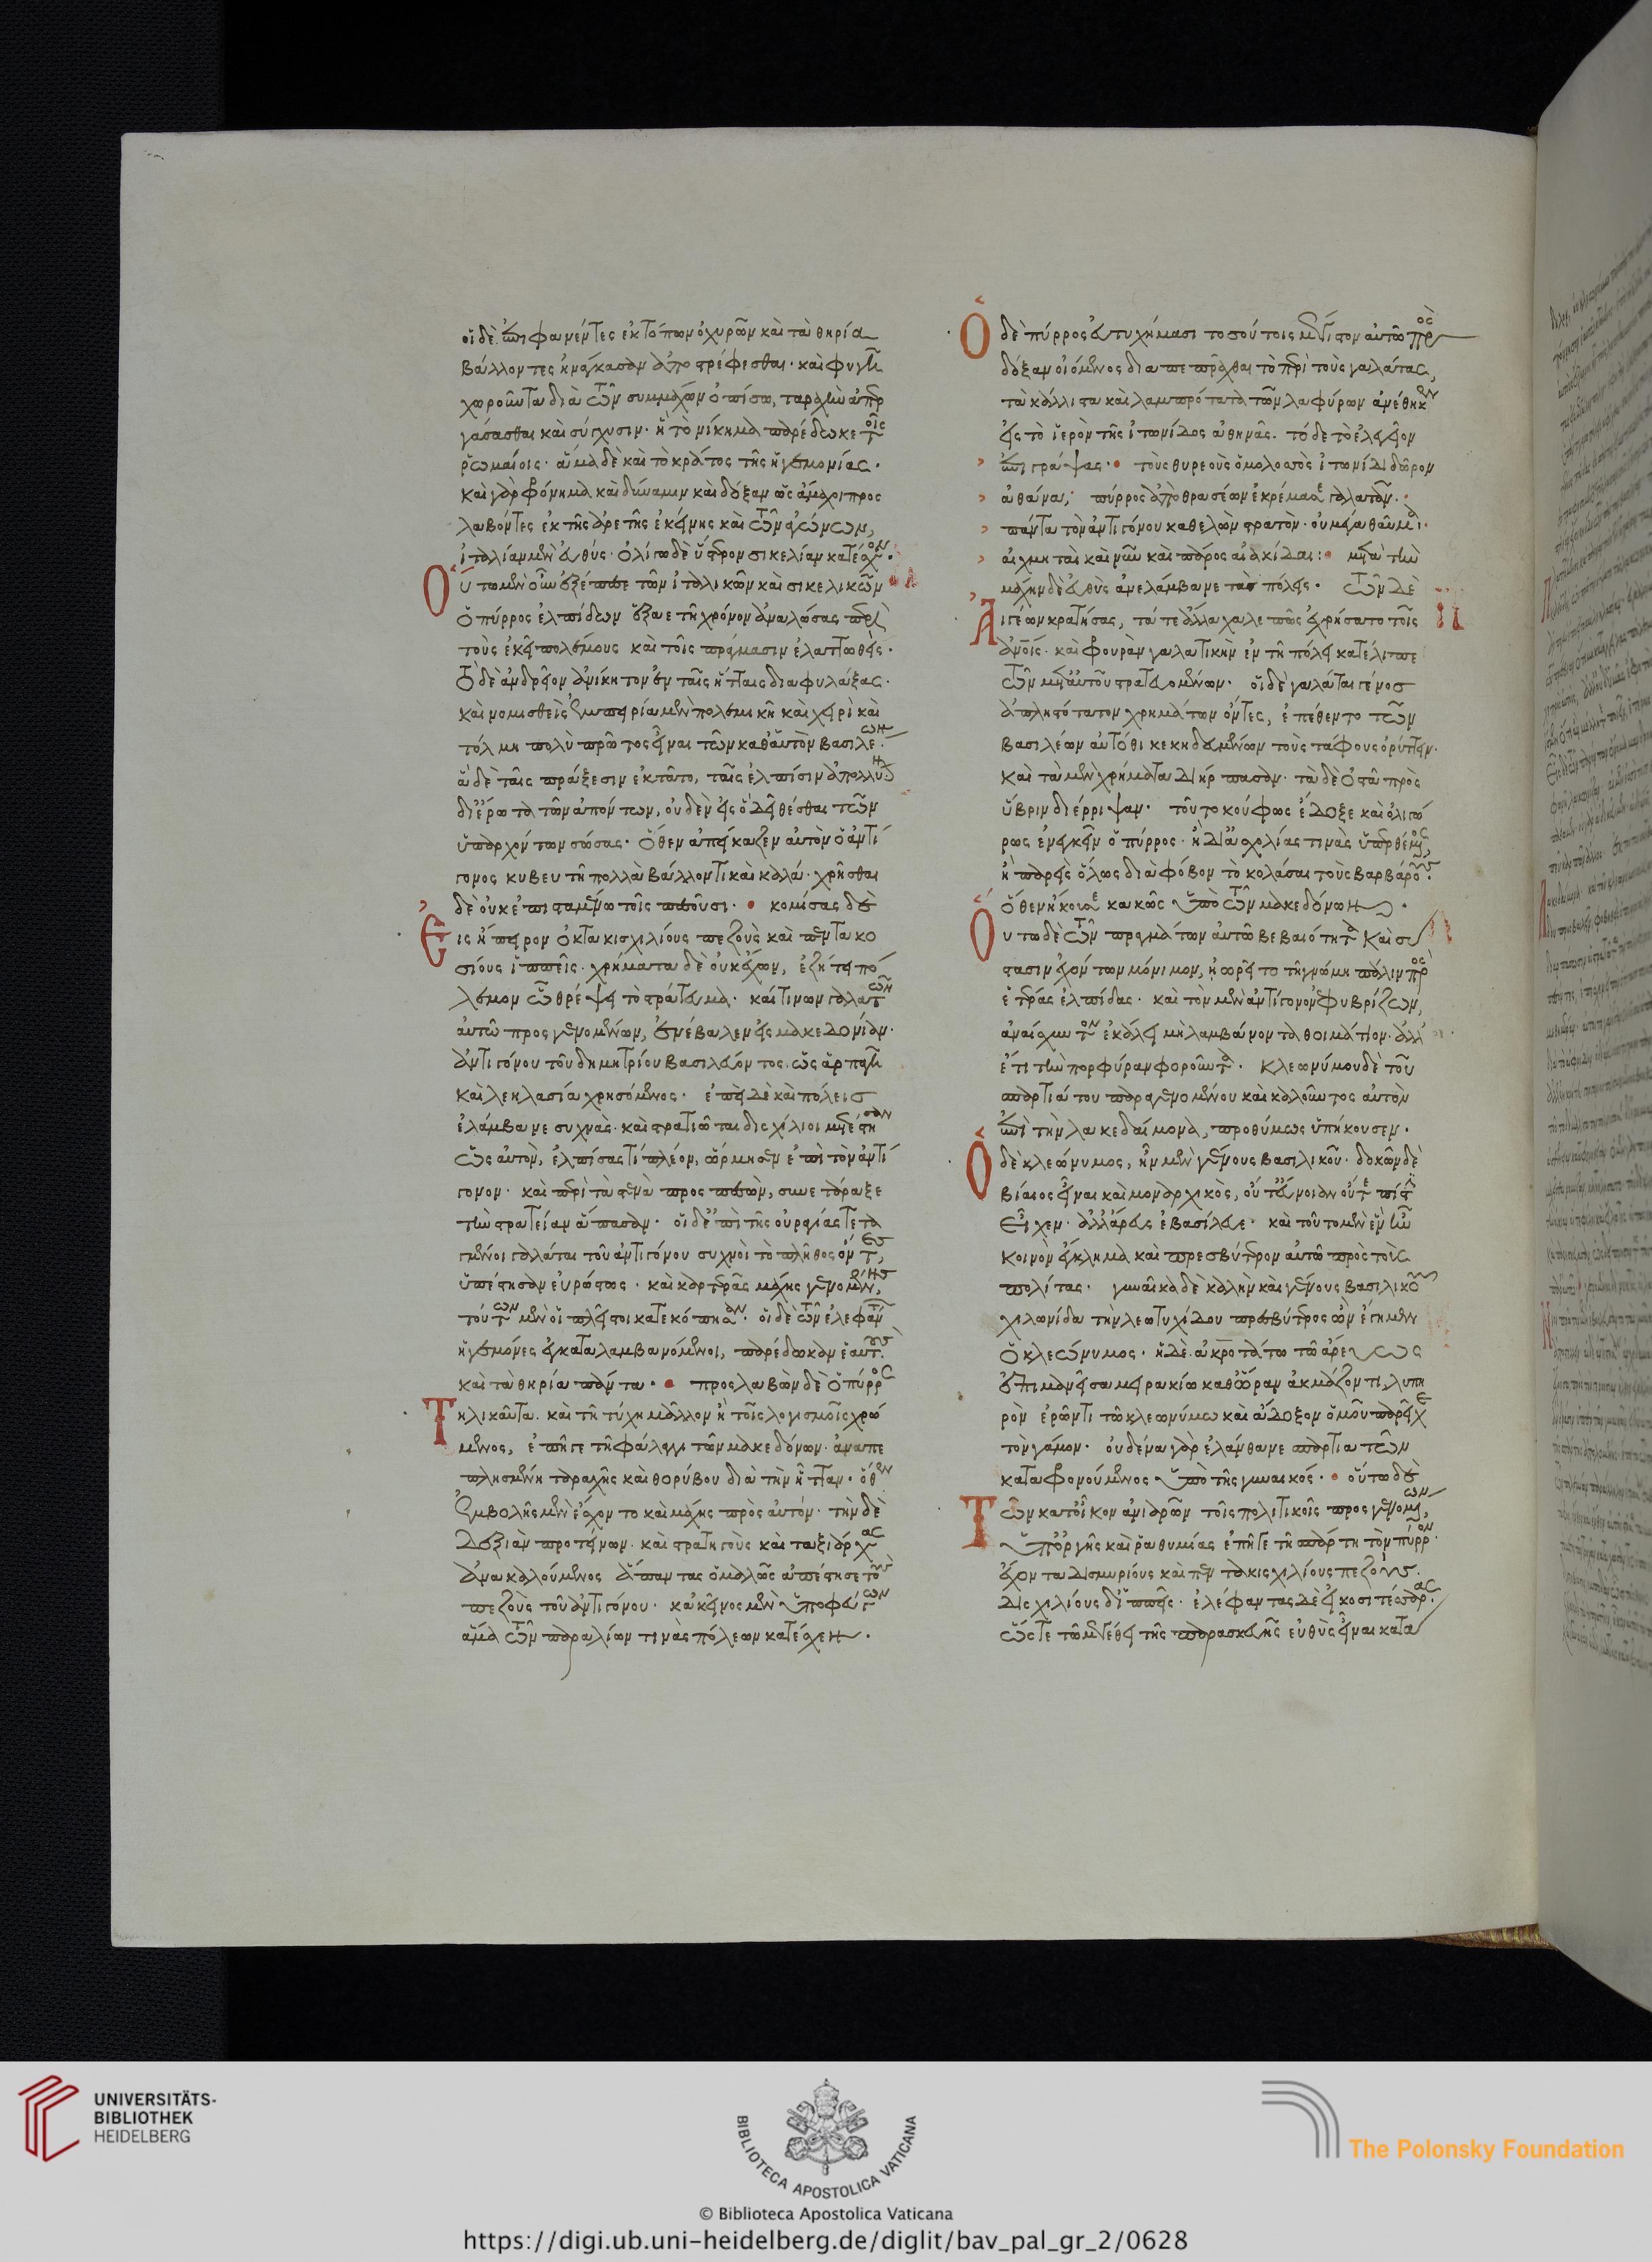 οἱ δὲ ἐπιφανέντες ἐκ τόπων ὀχυρῶν καὶ τὰ θηρία
βάλλοντες ἠνάγκασαν ἀποστρέφεσθαι· καὶ φυγῇ
χωροῦντα διὰ τῶν συμμάχων ὀπίσω, ταραχὴν ἀπερ
γάσασθαι καὶ σύγχυσιν· ἣ τὸ νίκημα παρέδωκε τοῖς
ῥωμαίοις· ἅμα δὲ καὶ τὸ κράτος τῆς ἡγεμονίας·
καὶ γὰρ φρόνημα καὶ δύναμιν καὶ δόξαν ὡς ἄμαχοι προς
λαβόντες ἐκ τῆς ἀρετῆς ἐκείνης καὶ τῶν ἀγώνων,
ἰταλίαν μὲν εὐθύς· ὀλίγῳ δὲ ὕστερον σικελίαν κατέσχον·
Οὕτω μὲν οὖν ἐξέπεσε τῶν ἰταλικῶν καὶ σικελικῶν
ὁ πύρρος ἐλπίδων ἑξαετῆ χρόνον ἀναλώσας περὶ
τοὺς ἐκεῖ πολέμους καὶ τοῖς πράγμασιν ἐλαττωθείς·
τὸ δὲ ἀνδρεῖον ἀνίκητον ἐν ταῖς ἥτταις διαφυλάξας·
καὶ νομισθεὶς ἐμπειρίᾳ μὲν πολεμικῇ καὶ χειρὶ καὶ
τόλμῃ πολὺ πρῶτος εἶναι τῶν καθ' αὑτὸν βασιλέων·
ἃ δὲ ταῖς πράξεσιν ἐκτᾶτο, ταῖς ἐλπίσιν ἀπολλύναι
δι' ἔρωτα τῶν ἀπόντων, οὐδὲν εἰς ὃ δεῖ θέσθαι τῶν
ὑπαρχόντων σώσας· ὅθεν ἀπείκαζεν αὐτὸν ὁ ἀντί
γονος κυβευτῇ πολλὰ βάλλοντι καὶ καλά· χρῆσθαι
δὲ οὐκ ἐπισταμένῳ τοῖς πεσοῦσι· κομίσας δὲ
Εἰς ἤπειρον ὀκτακισχιλίους πεζοὺς καὶ πεντακο
σίους ἱππεῖς· χρήματα δὲ οὐκ ἔχων, ἐζήτει πό
λεμον ᾧ θρέψει τὸ στράτευμα· καί τινων γαλατῶν
αὐτῷ προςγενομένων, ἐνέβαλεν εἰς μακεδονίαν·
ἀντιγόνου τοῦ δημητρίου βασιλεύοντος, ὡς ἁρπαγῇ
καὶ λεηλασίᾳ χρησόμενος· ἐπεὶ δὲ καὶ πόλεις
ἐλάμβανε συχνὰς· καὶ στρατιῶται διςχίλιοι μετέστησαν
ὡς αὐτόν, ἐλπίσας τὶ πλέον, ὥρμησεν ἐπὶ τὸν ἀντί
γονον· καὶ περὶ τὰ στενὰ προςπεσών, συνετάραξε
τὴν στρατείαν ἅπασαν· οἱ δ' ἐπὶ τῆς οὐραγίας τετα
γμένοι γαλάται τοῦ ἀντιγόνου συχνοὶ τὸ πλῆθος ὄντες,
ὑπέστησαν εὐρώστως· καὶ καρτερᾶς μάχης γενομένης,
τούτων μὲν οἱ πλεῖστοι κατεκόπησαν· οἱ δὲ τῶν ἐλεφάντων
ἡγεμόνες ἐγκαταλαμβανόμενοι, παρέδωκαν ἑαυτοὺς
καὶ τὰ θηρία πάντα· προςλαβὼν δὲ ὁ πύρρος
Τηλικαῦτα· καὶ τῇ τύχῃ μᾶλλον ἢ τοῖς λογισμοῖς χρώ
μενος, ἐπῆγε τῇ φάλαγγι τῶν μακεδόνων· ἀναπε
πλησμένῃ ταραχῆς καὶ θορύβου διὰ τὴν ἧτταν· ὅθεν
ἐμβολῆς μὲν ἔσχοντο καὶ μάχης πρὸς αὐτόν· τὴν δὲ
δεξιὰν προτείνων· καὶ στρατηγοὺς καὶ ταξιάρχας
ἀνακαλούμενος ἅπαντας ὁμαλῶς ἀπέστησε τοὺς
πεζοὺς τοῦ ἀντιγόνου· κἀκεῖνος μὲν ὑποφεύγων
ἅμα τῶν παραλίων τινὰς πόλεων κατέσχεν·
Ὁ δὲ πύρρος εὐτυχήμασι τοσούτοις μέγιστον αὐτῷ πρὸς
δόξαν οἰόμενος διαπεπρᾶχθαι τὸ περὶ τοὺς γαλάτας,
τὰ κάλλιστα καὶ λαμπρότατα τῶν λαφύρων ἀνέθηκεν
εἰς τὸ ἱερὸν τῆς ἰτωνίδος ἀθηνᾶς· τόδε τὸ ἐλεγεῖον
ἐπιγράψας· τοὺς θυρεοὺς ὁ μολοσσὸς ἰτωνίδι δῶρον
ἀθάνᾳ, πύρρος ἀπὸ θρασέων ἐκρέμασε γαλατᾶν·
πάντα τὸν ἀντιγόνου καθελὼν στρατόν· οὐ μέγα θαῦμα·
αἰχμηταὶ καὶ νῦν καὶ πάρος αἰακίδαι: μετὰ τὴν
μάχην δὲ εὐθὺς ἀνελάμβανε τὰς πόλεις· τῶν δὲ
Αἰγεῶν κρατήσας, τά τε ἄλλα χαλεπῶς ἐχρήσατο τοῖς
ἀνοις· καὶ φρουρὰν γαλατικὴν ἐν τῇ πόλει κατέλιπε
τῶν μετ' αὐτοῦ στρατευομένων· οἱ δὲ γαλάται γένος
ἀπληστότατον χρημάτων ὄντες, ἐπέθεντο τῶν
βασιλέων αὐτόθι κεκηδευμένων τοὺς τάφους ὀρύττειν·
καὶ τὰ μὲν χρήματα διήρπασαν· τὰ δὲ ὀστᾶ πρὸς
ὕβριν διέρριψαν· τοῦτο κούφως ἔδοξε καὶ ὀλιγώ
ρως ἐνεγκεῖν ὁ πύρρος· ἢ δι' ἀσχολίας τινὰς ὑπερθέμενος,
ἢ παρεὶς ὅλως διὰ φόβον τὸ κολάσαι τοὺς βαρβάρους·
ὅθεν ἤκουσε κακῶς ὑπὸ τῶν μακεδόνων·
Οὔπω δὲ τῶν πραγμάτων αὐτῷ βεβαιότητα καὶ σύ
στασιν ἐχόντων μόνιμον, ᾐωρεῖτο τῇ γνώμῃ πάλιν πρὸς
ἑτέρας ἐλπίδας· καὶ τὸν μὲν ἀντίγονον ἐφυβρίζων,
ἀναίσχυντον ἐκάλει μὴ λαμβάνοντα θοιμάτιον· ἀλλ'
ἔτι τὴν πορφύραν φοροῦντα· κλεωνύμου δὲ τοῦ
σπαρτιάτου παραγενομένου καὶ καλοῦντος αὐτὸν
ἐπὶ τὴν λακεδαίμονα, προθύμως ὑπήκουσεν·
Ὁ δὲ κλεώνυμος, ἦν μὲν γένους βασιλικοῦ· δοκῶν δὲ
βίαιος εἶναι καὶ μοναρχικὸς, οὔτ' εὔνοιαν οὔτε πίστιν
εἶχεν· ἀλλ' ἀρεὺς ἐβασίλευε· καὶ τοῦτο μὲν ἓν ἦν
κοινὸν ἔγκλημα καὶ πρεσβύτερον αὐτῷ πρὸς τοὺς
πολίτας· γυναῖκα δὲ καλὴν καὶ γένους βασιλικοῦ
χιλωνίδα τὴν λεωτυχίδου πρεσβύτερος ὢν ἔγημεν
ὁ κλεώνυμος· ἡ δὲ ἀκροτάτῳ τῷ ἀρέως
ἐπιμανεῖσα μειρακίῳ καθ' ὥραν ἀκμάζοντι, λυπη
ρὸν ἐρῶντι τῷ κλεωνύμῳ καὶ ἄδοξον ὁμοῦ παρεῖχε
τὸν γάμον· οὐδένα γὰρ ἐλάνθανε σπαρτιατῶν
καταφρονούμενος ὑπὸ τῆς γυναικός· οὕτω δὲ
Τῶν κατ' οἶκον ἀνιαρῶν τοῖς πολιτικοῖς προςγενομένων
ὑπ' ὀργῆς καὶ ῥαθυμίας ἐπῆγε τῇ σπάρτῃ τὸν πύρρον·
ἔχοντα δισμυρίους καὶ πεντακιςχιλίους πεζούς·
δισχιλίους δ' ἱππεῖς· ἐλέφαντας δὲ εἴκοσι τέσσαρας·
ὥςτε τῷ μεγέθει τῆς παρασκευῆς εὐθὺς εἶναι κατα
UNIVERSITÄTS-
BIBLIOTHEK
HEIDELBERG
BIBLIOTECA APOSTOLICA VATICANA
The Polonsky Foundation
© Biblioteca Apostolica Vaticana
https://digi.ub.uni-heidelberg.de/diglit/bav_pal_gr_2/0628